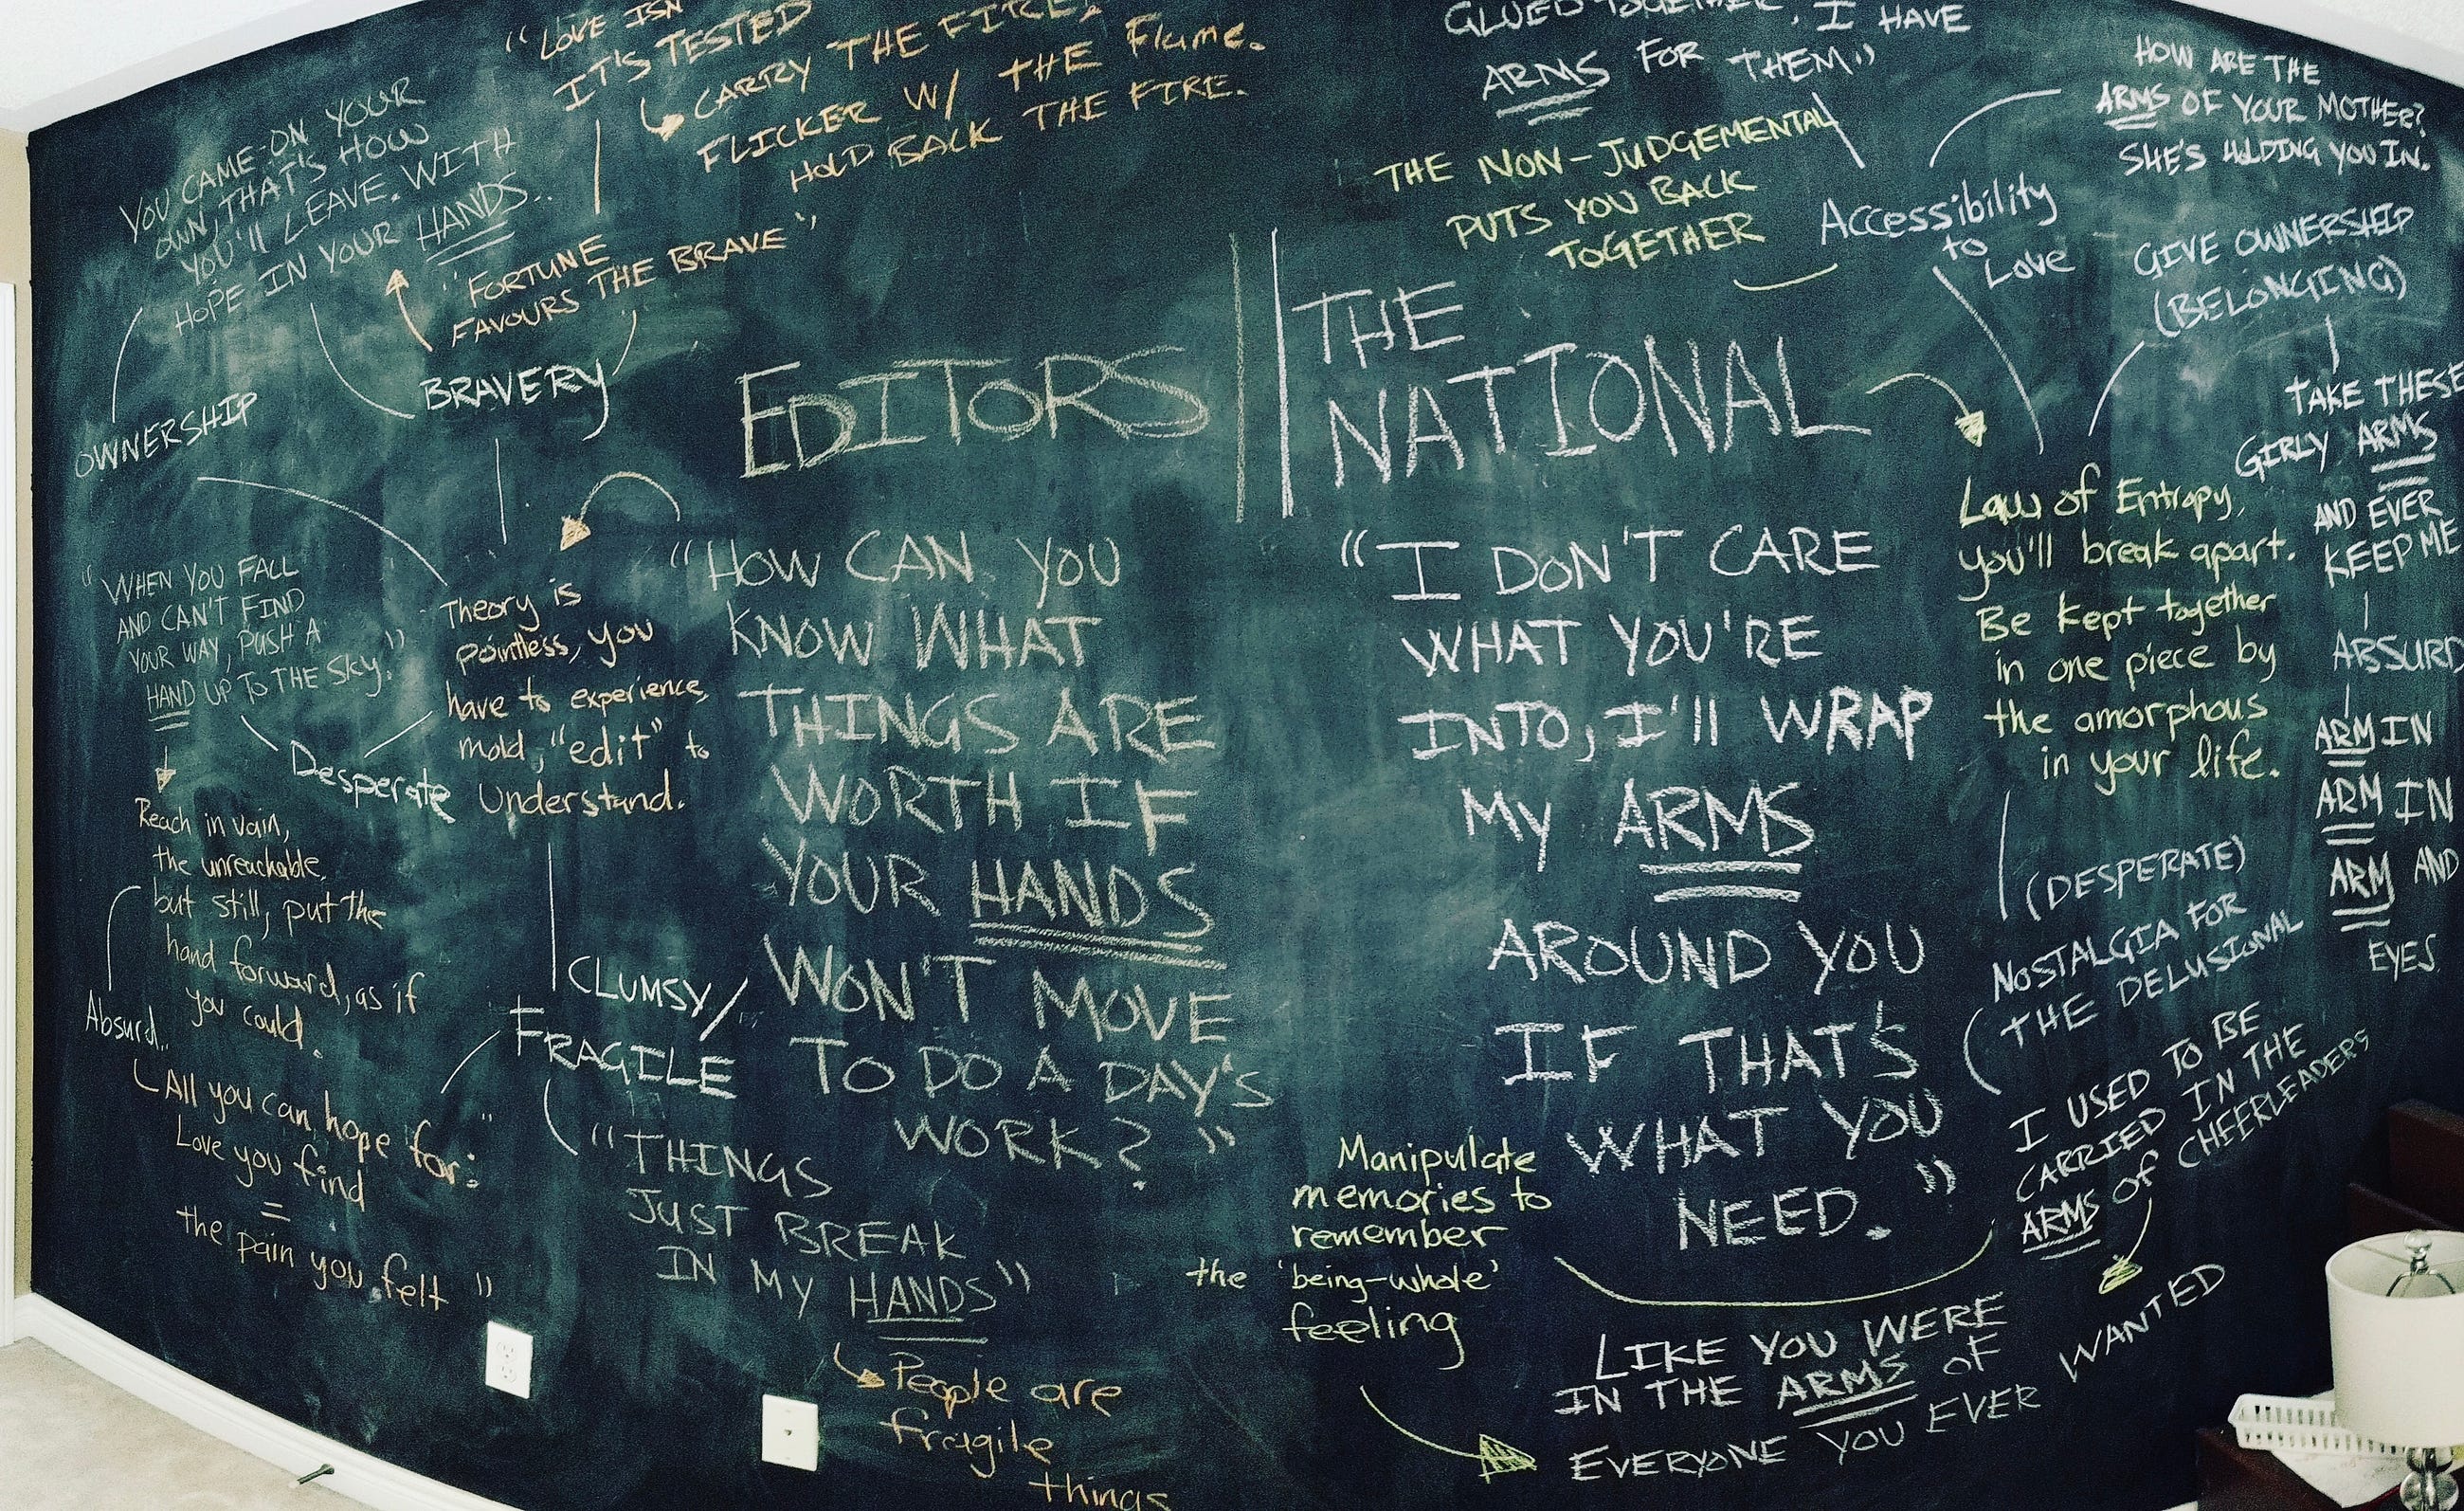 "LOVE ISN
IT'S TESTED
CARRY THE FIRE,
FLICKER W/ THE Flume.
HOLD BACK THE FIRE.
YOU CAME ON YOUR
OWN, THAT'S HOW
YOU'll LEAVE. WITH
HOPE IN YOUR HANDS..
'FORTUNE
FAVOURS THE BRAVE"
OWNERSHIP
BRAVERY
EDITORS
"WHEN YOU FALL
AND CAN'T FIND
YOUR WAY, PUSH A
HAND UP TO THE SKY."
Theory is
pointless, you
have to experience,
mold, "edit" to
Understand.
Desperate
Reach in vain,
the unreachable,
but still, put the
hand forward, as if
you could.
Absurd..
All you can hope for:
"Love you find
=
the pain you felt"
CLUMSY/
FRAGILE
"HOW CAN YOU
KNOW WHAT
THINGS ARE
WORTH IF
YOUR HANDS
WON'T MOVE
TO DO A DAY'S
WORK?"
"THINGS
JUST BREAK
IN MY HANDS"
People are
fragile
things
GLUED TOGETHER, I HAVE
ARMS FOR THEM"
THE NON-JUDGEMENTAL
PUTS YOU BACK
TOGETHER
Accessibility
to
Love
HOW ARE THE
ARMS OF YOUR MOTHER?
SHE'S HOLDING YOU IN.
GIVE OWNERSHIP
(BELONGING)
THE
NATIONAL
"I DON'T CARE
WHAT YOU'RE
INTO, I'll WRAP
MY ARMS
AROUND YOU
IF THAT'S
WHAT YOU
NEED."
Law of Entropy,
you'll break apart.
Be kept together
in one piece by
the amorphous
in your life.
TAKE THESE
GIRLY ARMS
AND EVER
KEEP ME
ABSURD
ARM IN
ARM IN
ARM AND
EYES
(DESPERATE)
NOSTALGIA FOR
THE DELUSIONAL
I USED TO BE
CARRIED IN THE
ARMS of CHEERLEADERS
Manipulate
memories to
remember
the 'being-whole'
feeling
LIKE YOU WERE
IN THE ARMS OF
EVERYONE YOU EVER WANTED